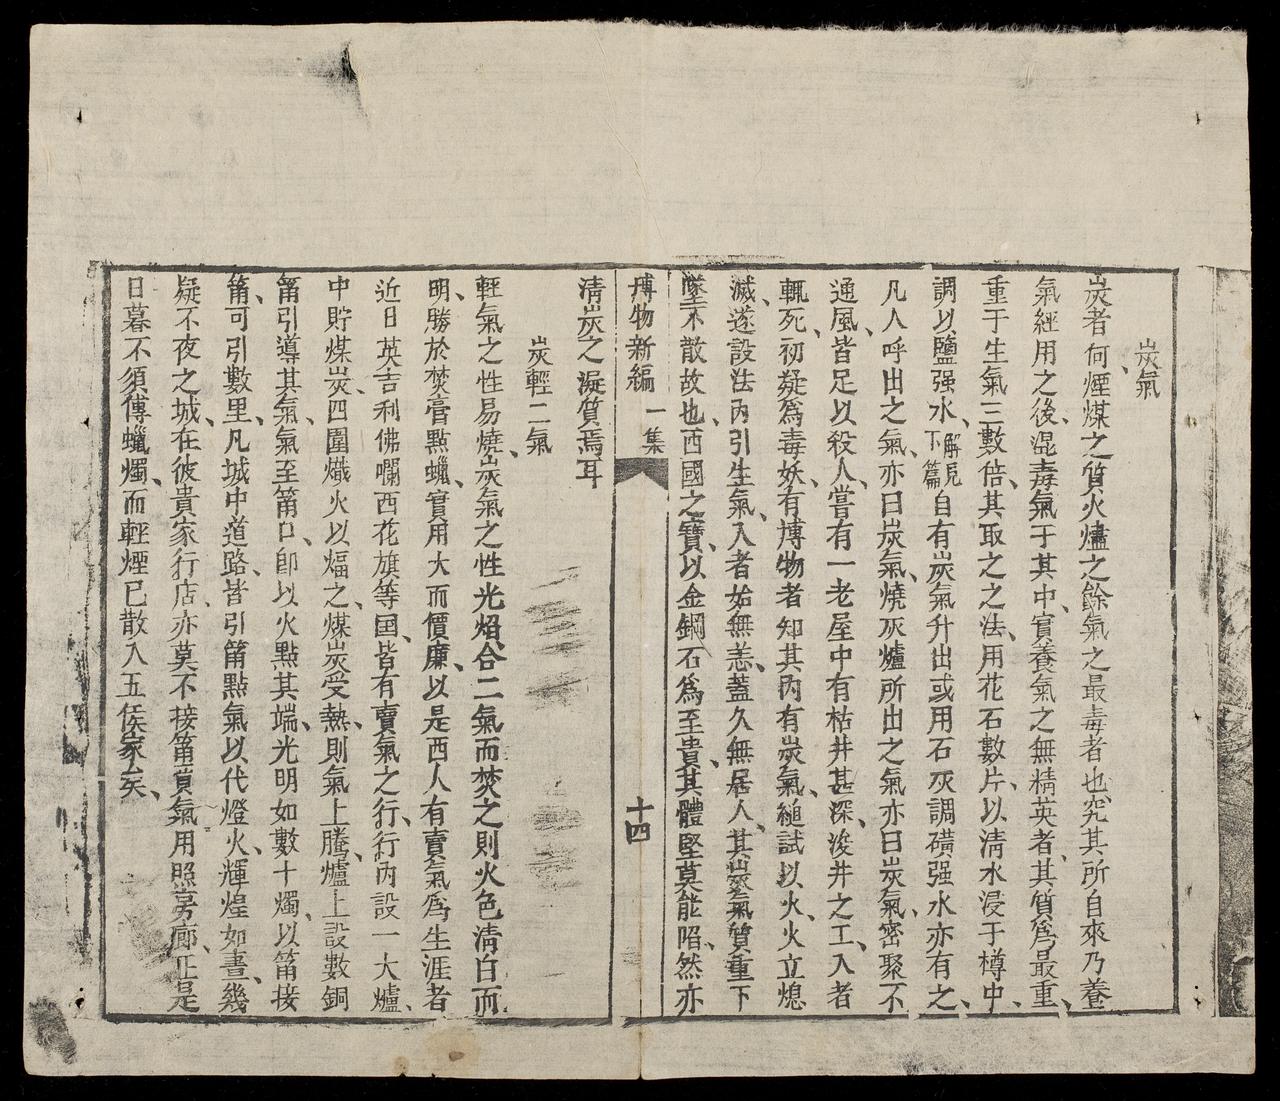 炭氣
炭者何煙煤之質火爐之餘氣之最毒者也究其所自來乃養
氣經用之後混毒氣于其中實養氣之無精英者其質爲最重
重于生氣三數倍其取之之法用花石數片以淸水浸于樽中
調以鹽强水解見下篇自有炭氣升出或用石灰調磺强水亦有之
凡人呼出之氣亦曰炭氣燒灰爐所出之氣亦曰炭氣密聚不
通風皆足以殺人嘗有一老屋中有枯井甚深浚井之工入者
輒死初疑爲毒妖有博物者知其內有炭氣縋試以火火立熄
滅遂設法內引生氣入者始無恙蓋久無居人其炭氣質重下
墜不散故也西國之寶以金鋼石爲至貴其體堅莫能䧟然亦
博物新編 一集 十四
淸炭之凝質焉耳
炭輕二氣
輕氣之性易燒炭氣之性光焰合二氣而焚之則火色淸白而
明勝於焚膏點蠟實用大而價廉以是西人有賣氣爲生涯者
近日英吉利佛囒西花旗等国皆有賣氣之行行內設一大爐
中貯煤炭四圍熾火以煏之煤炭受熱則氣上騰爐上設數銅
筩引導其氣氣至筩口卽以火點其端光明如數十燭以筩接
筩可引數里凡城中道路皆引筩點氣以代燈火輝煌如晝幾
疑不夜之城在彼貴家行店亦莫不接筩買氣用照房廊正是
日暮不須傳蠟燭而輕煙已散入五侯家矣